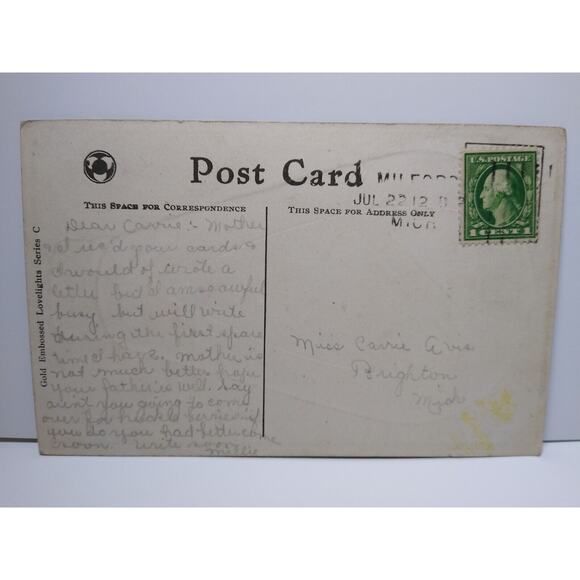 Post Card
MILFORD
JUL 22 12
MICH
U.S. POSTAGE
1 CENT 1
THIS SPACE FOR CORRESPONDENCE
THIS SPACE FOR ADDRESS ONLY
Gold Embossed Lovelights Series C
Dear Carrie:- Mother
& I rec'd your cards &
I would of wrote a
letter but I am so awful
busy but will write
during the first spare
time I have. Mother is
not much better hope
your father is well. Say
aint you going to come
over for huckle berries if
you do you had better come
soon. Write soon
Millie
Miss Carrie Avis
Brighton
Mich